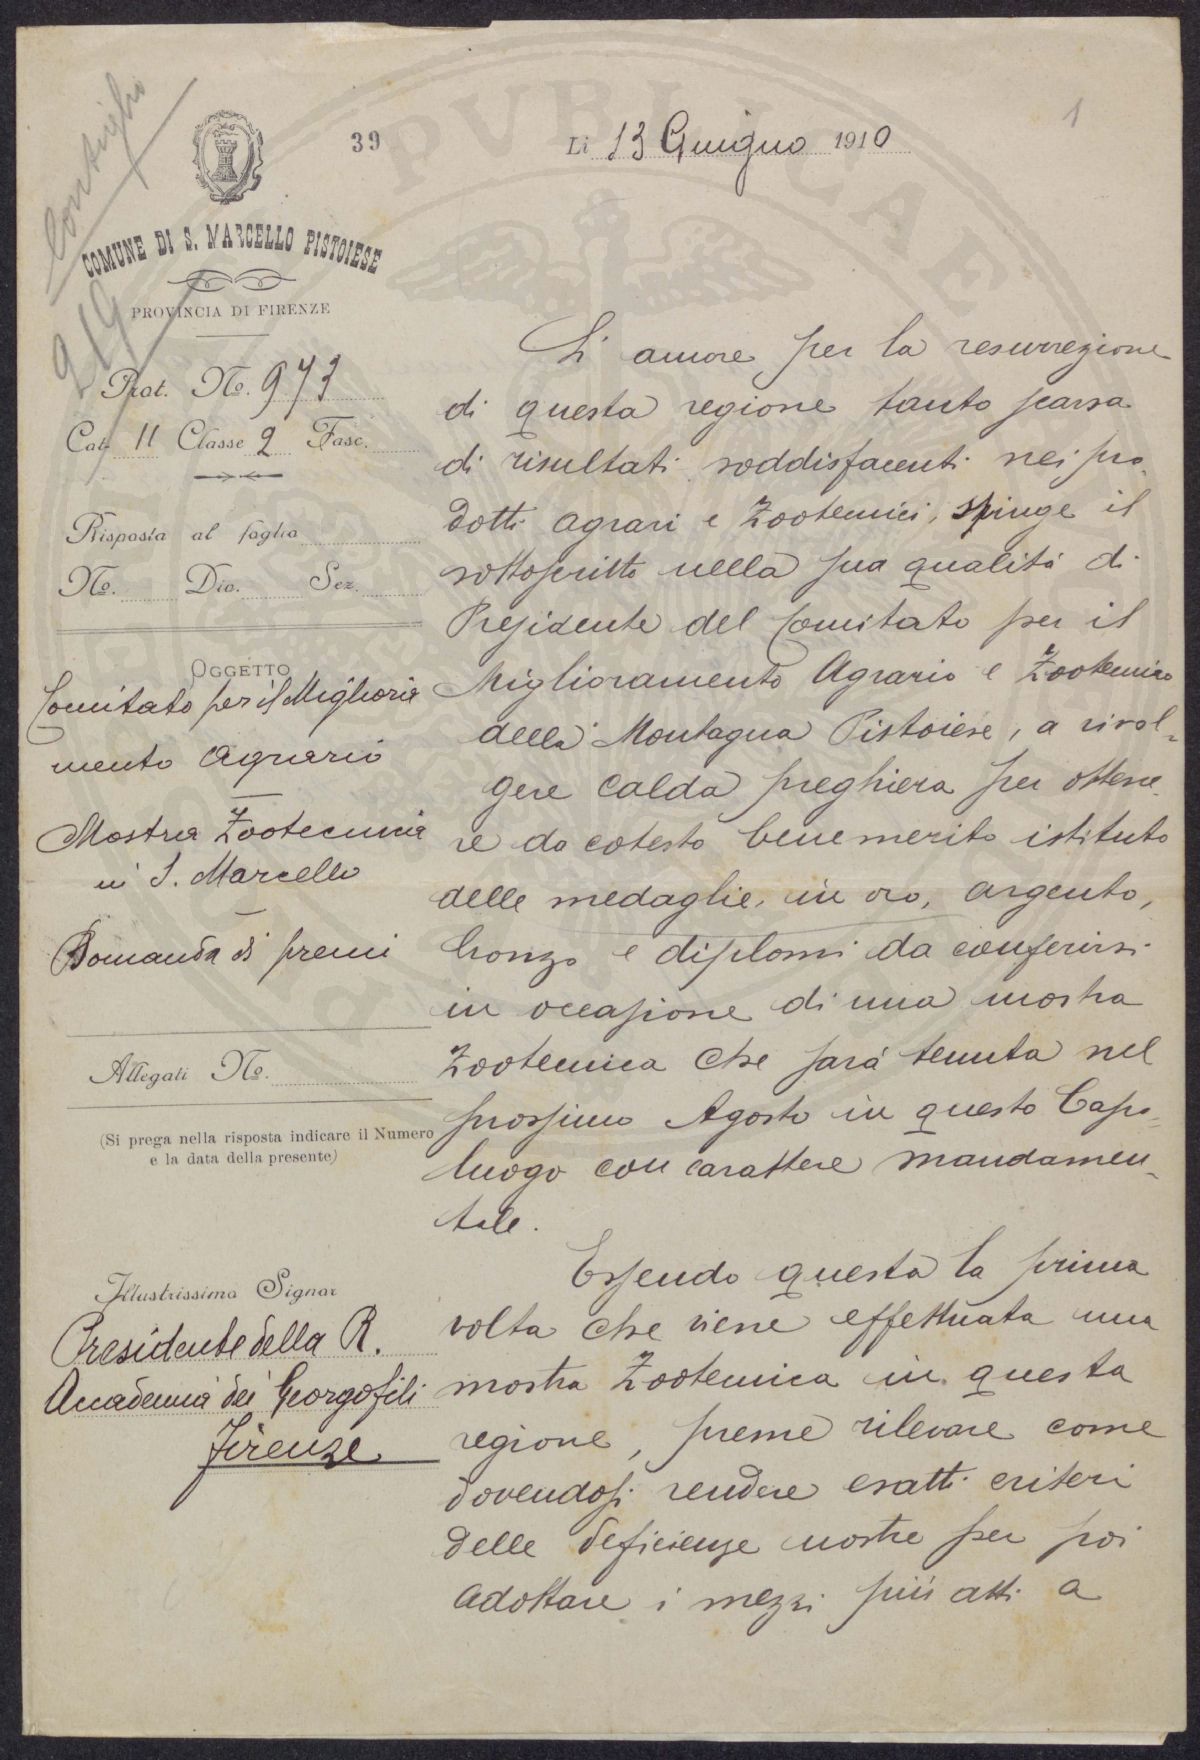 Consiglio
219
39
Li 13 Giugno 1910
1
COMUNE DI S. MARCELLO PISTOIESE
PROVINCIA DI FIRENZE
Prot. No. 973
Cat. 11 Classe 2 Fasc.
Risposta al foglio
No. Div. Sez.
OGGETTO
Comitato per il Migliora
mento Agrario
Mostra Zootecnica
in S. Marcello
Domanda di premi
Allegati No.
(Si prega nella risposta indicare il Numero
e la data della presente)
Illustrissimo Signor
Presidente della R.
Accademia dei Georgofili
Firenze
L'amore per la resurrezione
di questa regione tanto scarsa
di risultati soddisfacenti nei pro-
dotti agrari e zootecnici, spinge il
sottoscritto nella sua qualità di
Presidente del Comitato per il
Miglioramento Agrario e Zootecnico
della Montagna Pistoiese, a rivol-
gere calda preghiera per ottene-
re da cotesto benemerito istituto
delle medaglie in oro, argento,
bronzo e diplomi da conferirsi
in occasione di una mostra
Zootecnica che sarà tenuta nel
prossimo Agosto in questo Capo-
luogo con carattere mandamen-
tale.
Essendo questa la prima
volta che viene effettuata una
mostra Zootecnica in questa
regione, preme rilevare come
dovendosi rendere esatti criteri
delle deficienze nostre per poi
adottare i mezzi più atti a